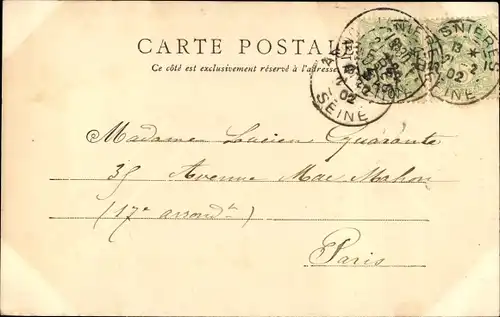 CARTE POSTALE
Ce côté est exclusivement réservé à l'adresse
ASNIERES
13 *
2
02
SEINE
02
SEINE
Madame Lucien Quarante
35 Avenue Mac Mahon
(17e arrondt)
Paris